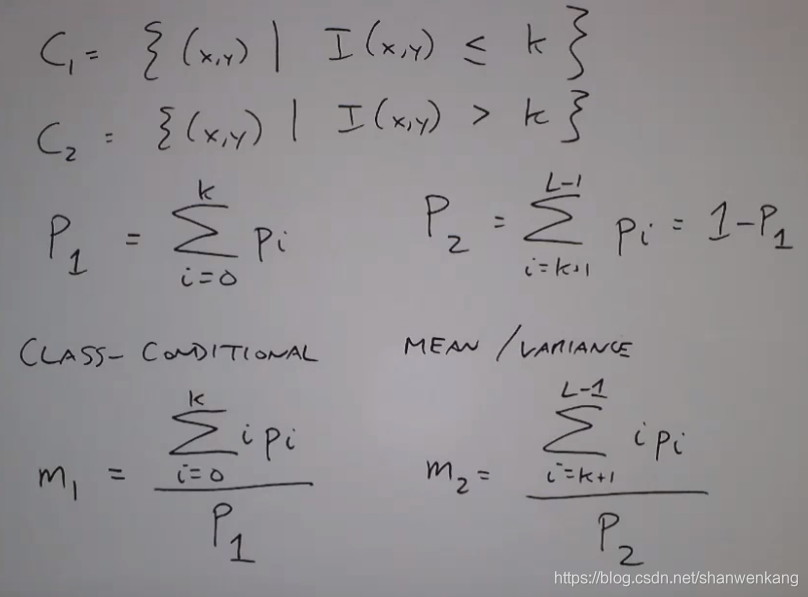 C₁ = {(x,y) | I(x,y) ≤ k}
C₂ = {(x,y) | I(x,y) > k}
P₁ = ∑_{i=0}^{k} pi P₂ = ∑_{i=k+1}^{L-1} pi = 1-P₁
CLASS-CONDITIONAL MEAN/VARIANCE
m₁ = ∑_{i=0}^{k} i pi / P₁ m₂ = ∑_{i=k+1}^{L-1} i pi / P₂
https://blog.csdn.net/shanwenkang